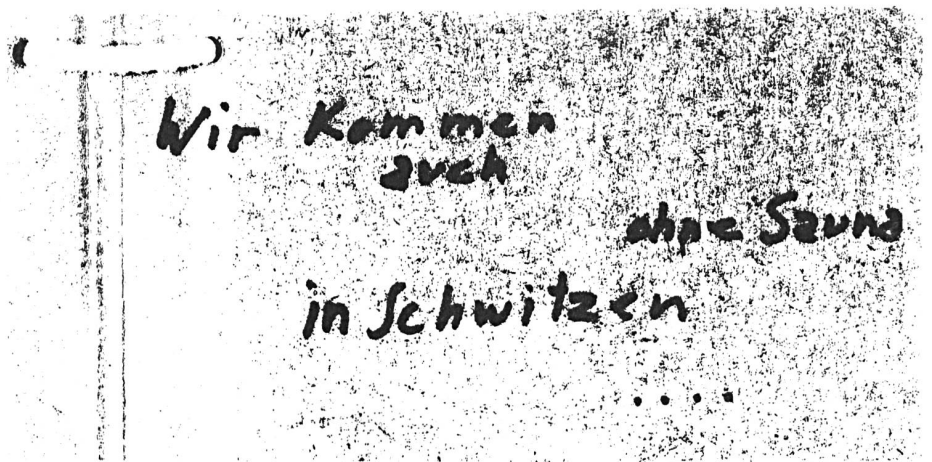 Wir Kommen
auch
ohne Sauna
in Schwitzen
....